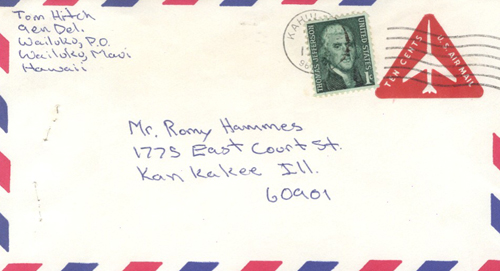 Tom Hitch
Gen Del.
Wailuku, P.O.
Wailuku, Maui
Hawaii
KAHUL
THOMAS JEFFERSON
UNITED STATES
1¢
TEN CENTS
U.S. AIR MAIL
Mr. Romy Hammes
1775 East Court St.
Kankakee Ill.
60901